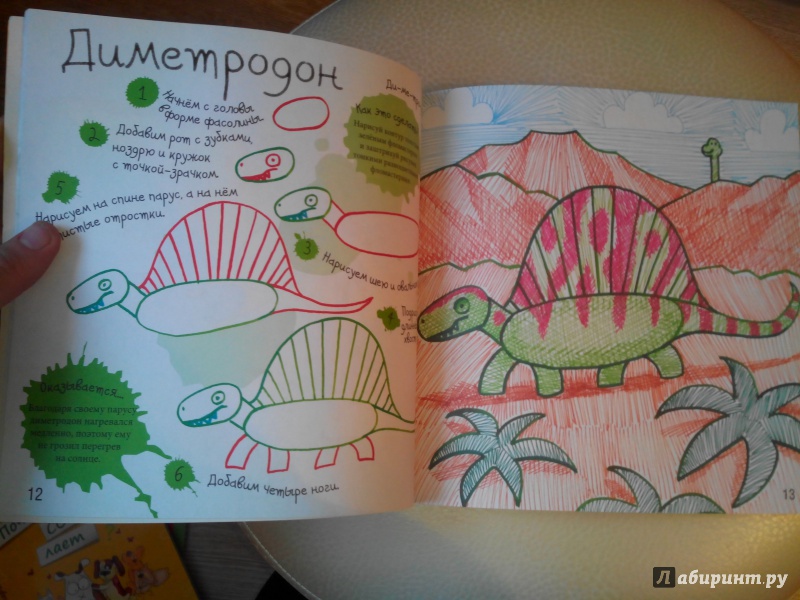 Диметродон
1
Начнём с головы
в форме фасолины
2
Добавим рот с зубками,
ноздрю и кружок
с точкой-зрачком
Ди-ме-т
Как это сделать
Нарисуй контур
зелёным
и заштрихуй
тонкими
фломастерами
5
Нарисуем на спине парус, а на нём
отростки
3
Нарисуем шею и
4
Оказывается...
Благодаря своему парусу
диметродон нагревался
поэтому ему
не грозил перегрев
на солнце.
6
Добавим четыре ноги
12
13
По-
лает
Лабиринт.ру